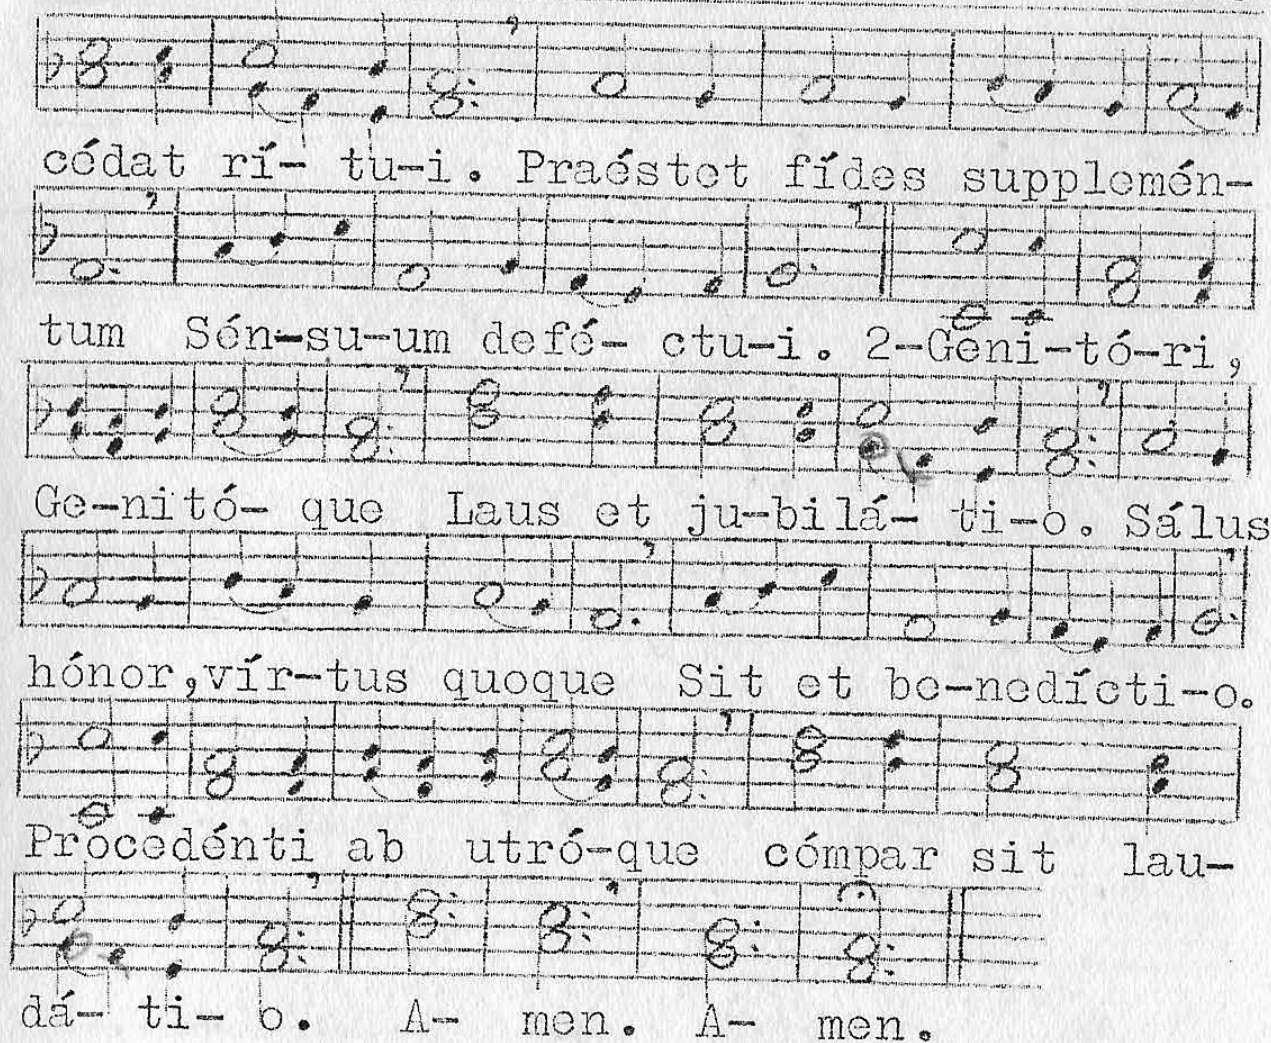 cédat rí- tu-i. Praéstet fídes supplemén-
tum Sén-su-um defé- ctu-i. 2-Geni-tó-ri,
Ge-nitó- que Laus et ju-bilá- ti-o. Sálus
hónor,vír-tus quoque Sit et be-nedícti-o.
Procedénti ab utró-que cómpar sit lau-
dá- ti- o. A- men. A- men.